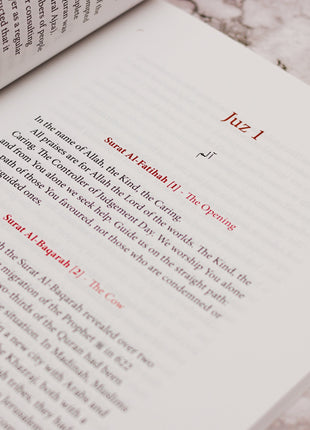 that it
as a regular
consulting
of people
Ayat,
Quran was
Juz 1
الٓمٓ
Surat Al-Fatihah [1] - The Opening
In the name of Allah, the Kind, the Caring.
All praises are for Allah the Lord of the worlds. The Kind, the
Caring. The Controller of Judgement Day. We worship You alone
and from You alone we seek help. Guide us on the straight path:
path of those You favoured, not those who are condemned or
guided ones.
Surat Al-Baqarah [2] - The Cow
the Surat Al-Baqarah revealed over two
migration of the Prophet ﷺ in 622
two thirds of the Quran had been
situation. In Madinah, Muslims
a new city with Arabs and
Khazraj, both with
tribes, they
Jerusalem